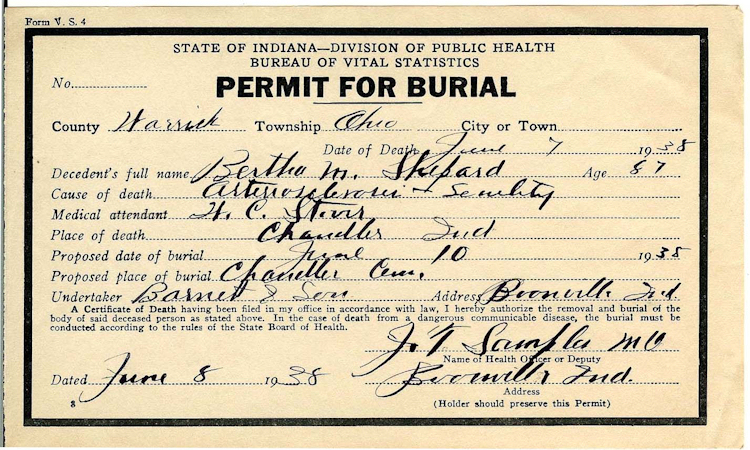 Form V. S. 4
STATE OF INDIANA—DIVISION OF PUBLIC HEALTH
BUREAU OF VITAL STATISTICS
No.
PERMIT FOR BURIAL
County Warrick Township Ohio City or Town
Date of Death June 7 1938
Decedent's full name Bertha M. Shepard Age 87
Cause of death Arteriosclerosis + Senility
Medical attendant W. C.
Place of death Chandler Ind
Proposed date of burial June 10 1938
Proposed place of burial Chandler Cem.
Undertaker Barnett & Son Address Boonville Ind.
A Certificate of Death having been filed in my office in accordance with law, I hereby authorize the removal and burial of the
body of said deceased person as stated above. In the case of death from a dangerous communicable disease, the burial must be
conducted according to the rules of the State Board of Health.
J. T Samples MD
Name of Health Officer or Deputy
Dated June 8 1938 Boonville Ind.
Address
8 (Holder should preserve this Permit)